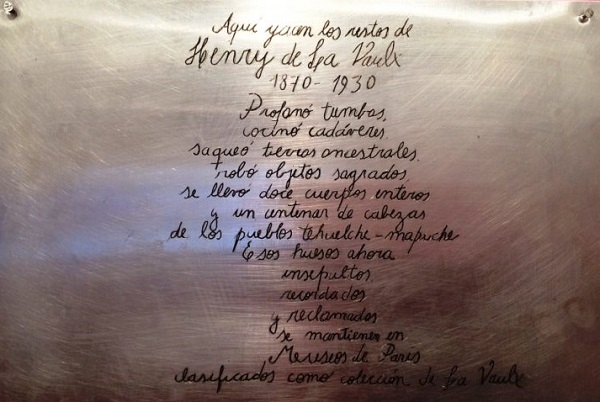 Aquí yacen los restos de
Henry de La Vaulx
1870-1930
Profanó tumbas,
cocinó cadáveres,
saqueó tierras ancestrales,
robó objetos sagrados,
se llevó doce cuerpos enteros
y un centenar de cabezas
de los pueblos tehuelche-mapuche
Esos huesos ahora
insepultos,
recordados
y reclamados
se mantienen en
Museos de París
clasificados como colección de La Vaulx